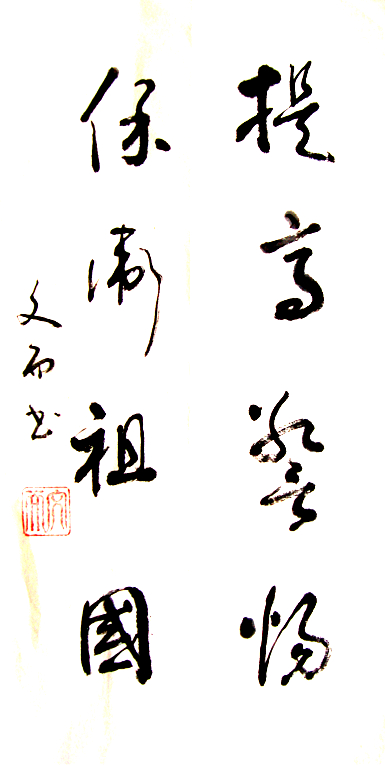 提高警惕
保衛祖國
文而书